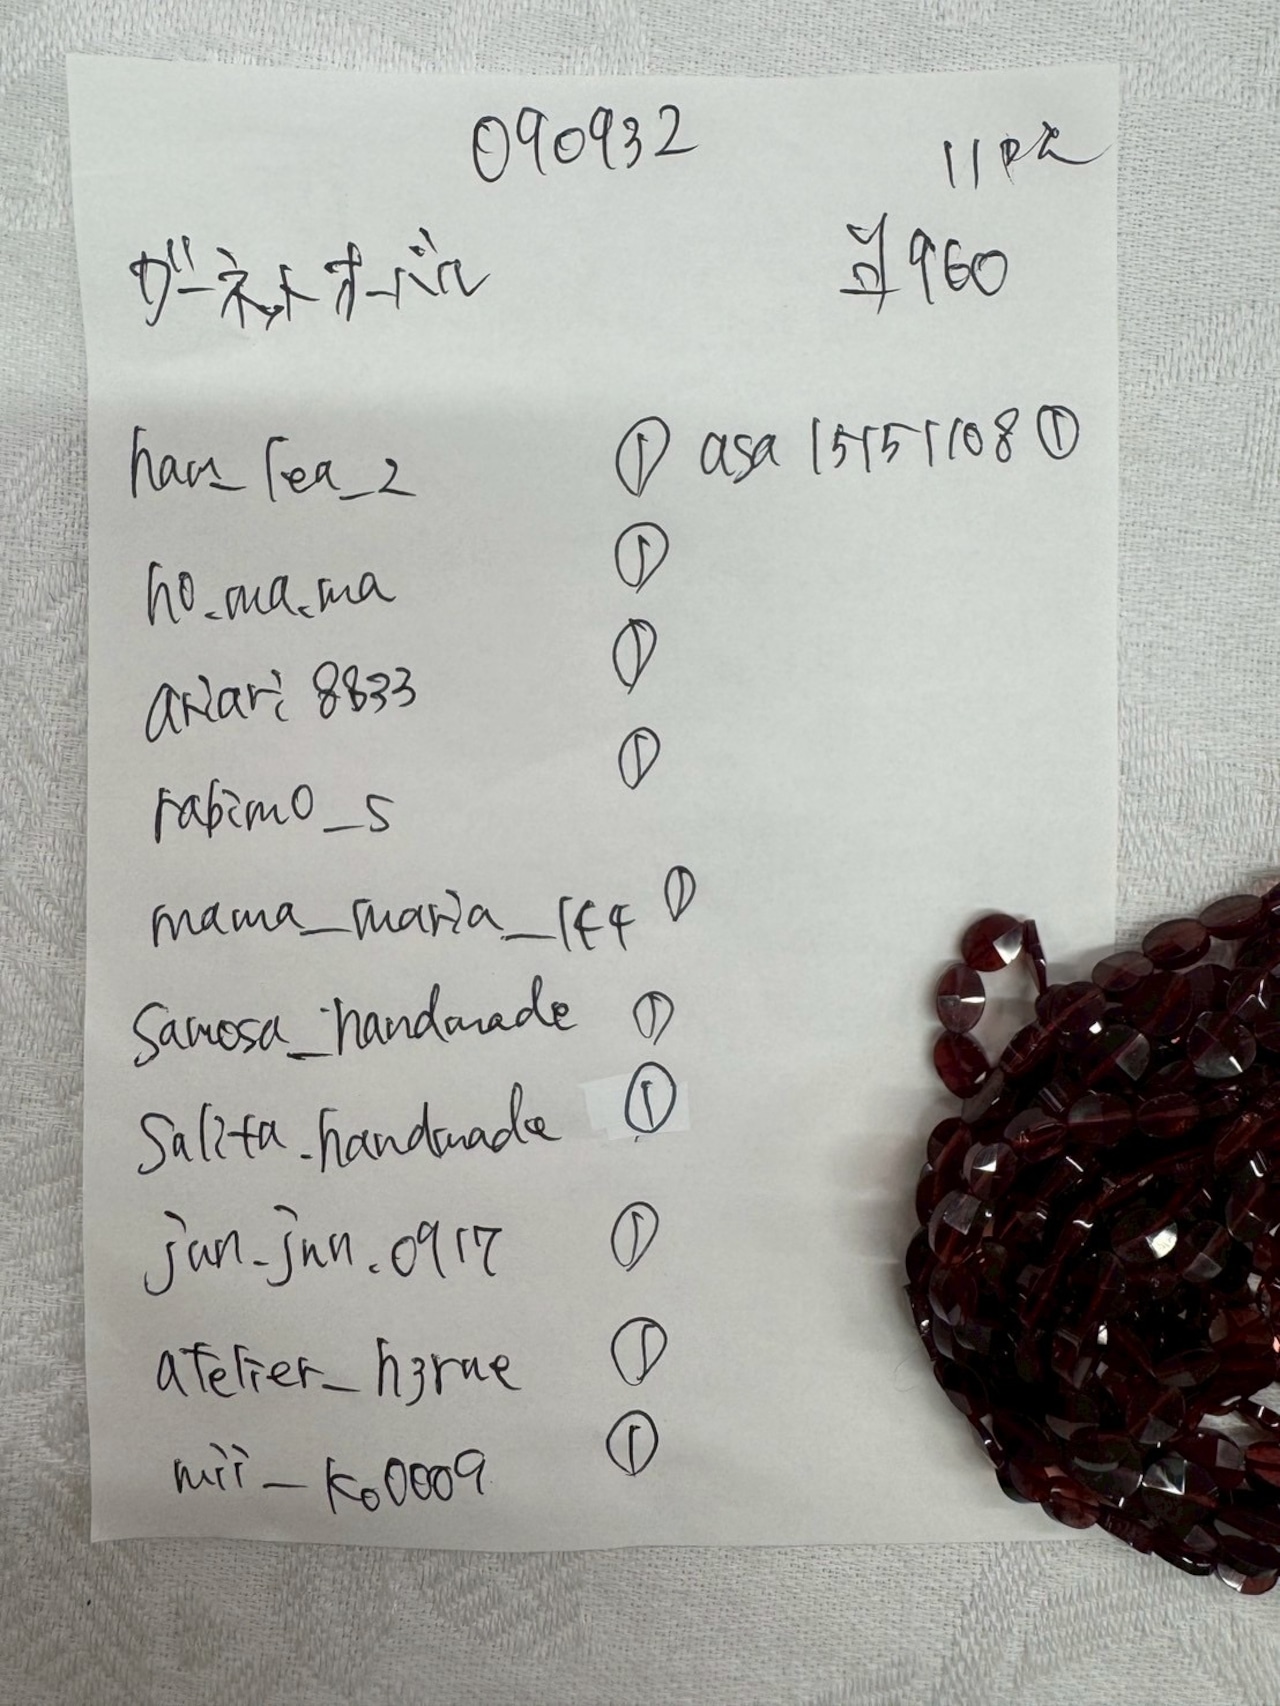 090932
11点
ガーネットオーバル
単960
haru_lea_2 ①
asa15151108 ①
ho.ma.ma ①
ariari8833 ①
rabimo_s ①
mama_maria_144 ①
samosa_handmade ①
salita.handmade ①
jun-jun.0917 ①
atelier_h3rue ①
mii_ko0009 ①